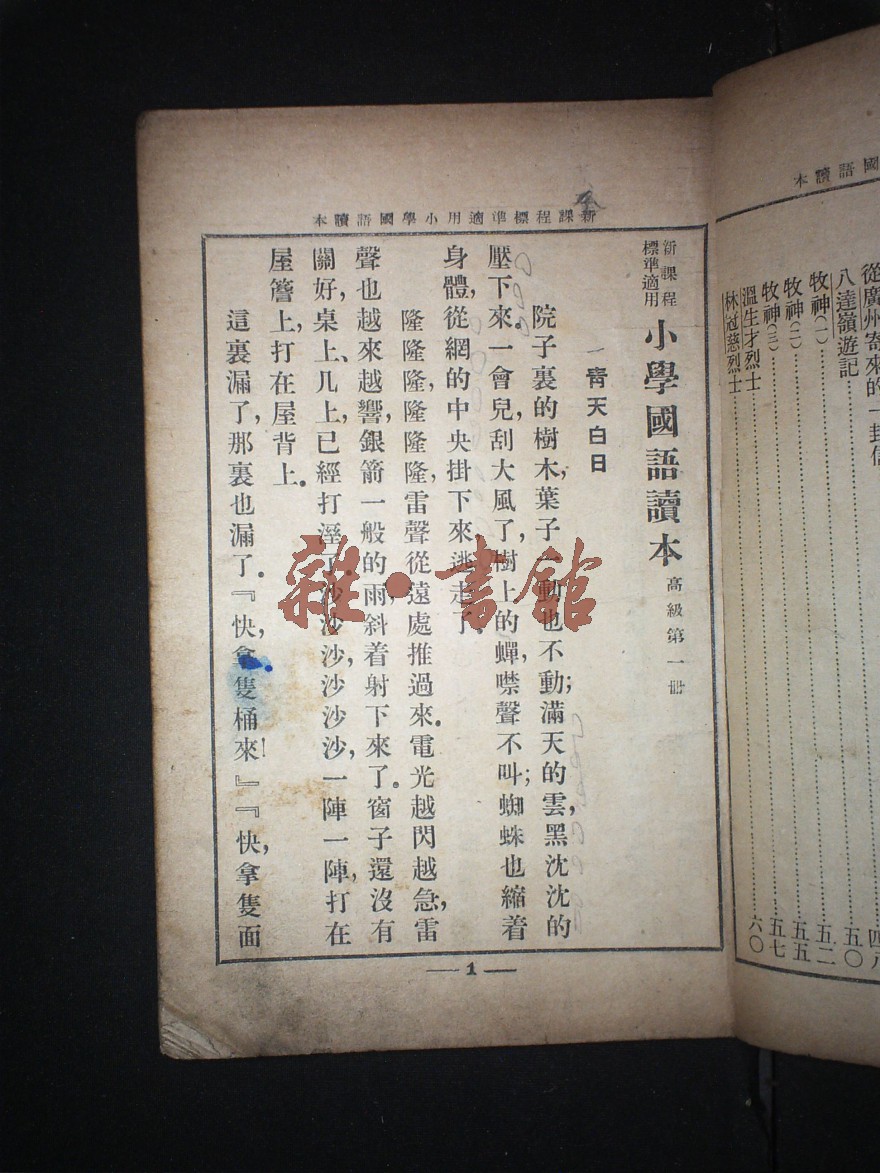 國語讀本
從廣州寄來的一封信 四八
八達嶺遊記 五〇
牧神(一) 五二
牧神(二) 五五
牧神(三) 五七
溫生才烈士
林冠慈烈士 六〇
新課程標準適用小學國語讀本
新課程
標準適用
小學國語讀本 高級第一冊
一 青天白日
院子裏的樹木,葉子一動也不動;滿天的雲,黑沈沈的
壓下來。一會兒,刮大風了,樹上的蟬,噤聲不叫;蜘蛛也縮着
身體,從網的中央掛下來逃走了。
隆隆隆,隆隆隆,雷聲從遠處推過來。電光越閃越急,雷
聲也越來越響,銀箭一般的雨,斜着射下來了。窗子還沒有
關好,桌上、几上,已經打溼了。沙沙沙,沙沙沙,一陣一陣,打在
屋簷上,打在屋背上。
這裏漏了,那裏也漏了。『快,拿隻桶來!』『快,拿隻面
—1—
雜·書館